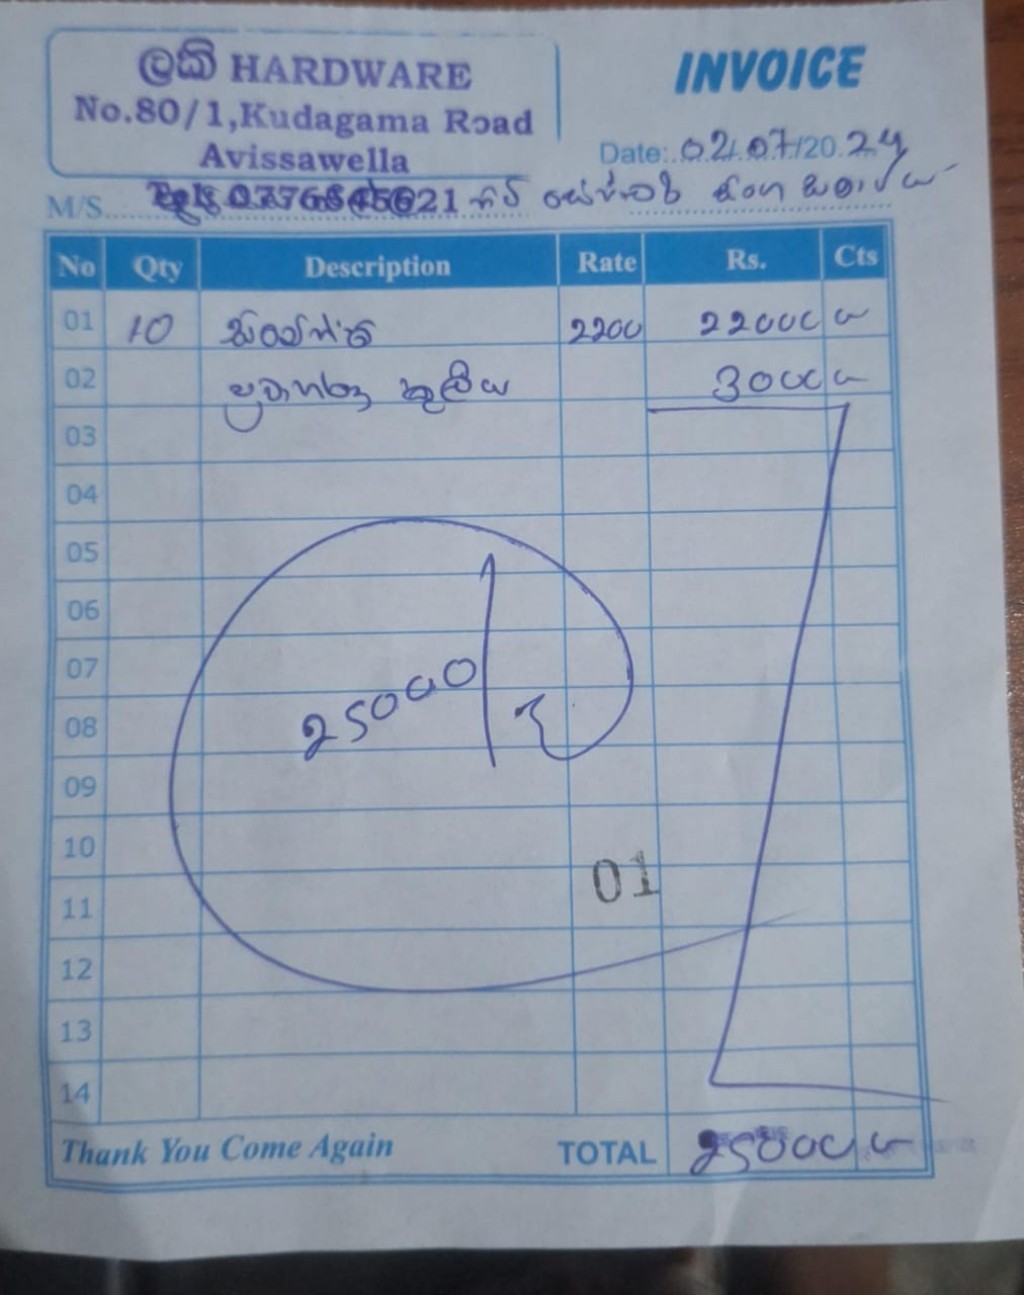 ලකී HARDWARE
No.80/1,Kudagama Road
Avissawella
INVOICE
Date: 02/07/2024
M/S
No Qty Description Rate Rs. Cts
01 10 සිමෙන්ති 2200 22000
02 ප්‍රවාහන කුලිය 3000
03
04
05
06
07
08
25000
09
10
01
11
12
13
14
Thank You Come Again TOTAL 25000